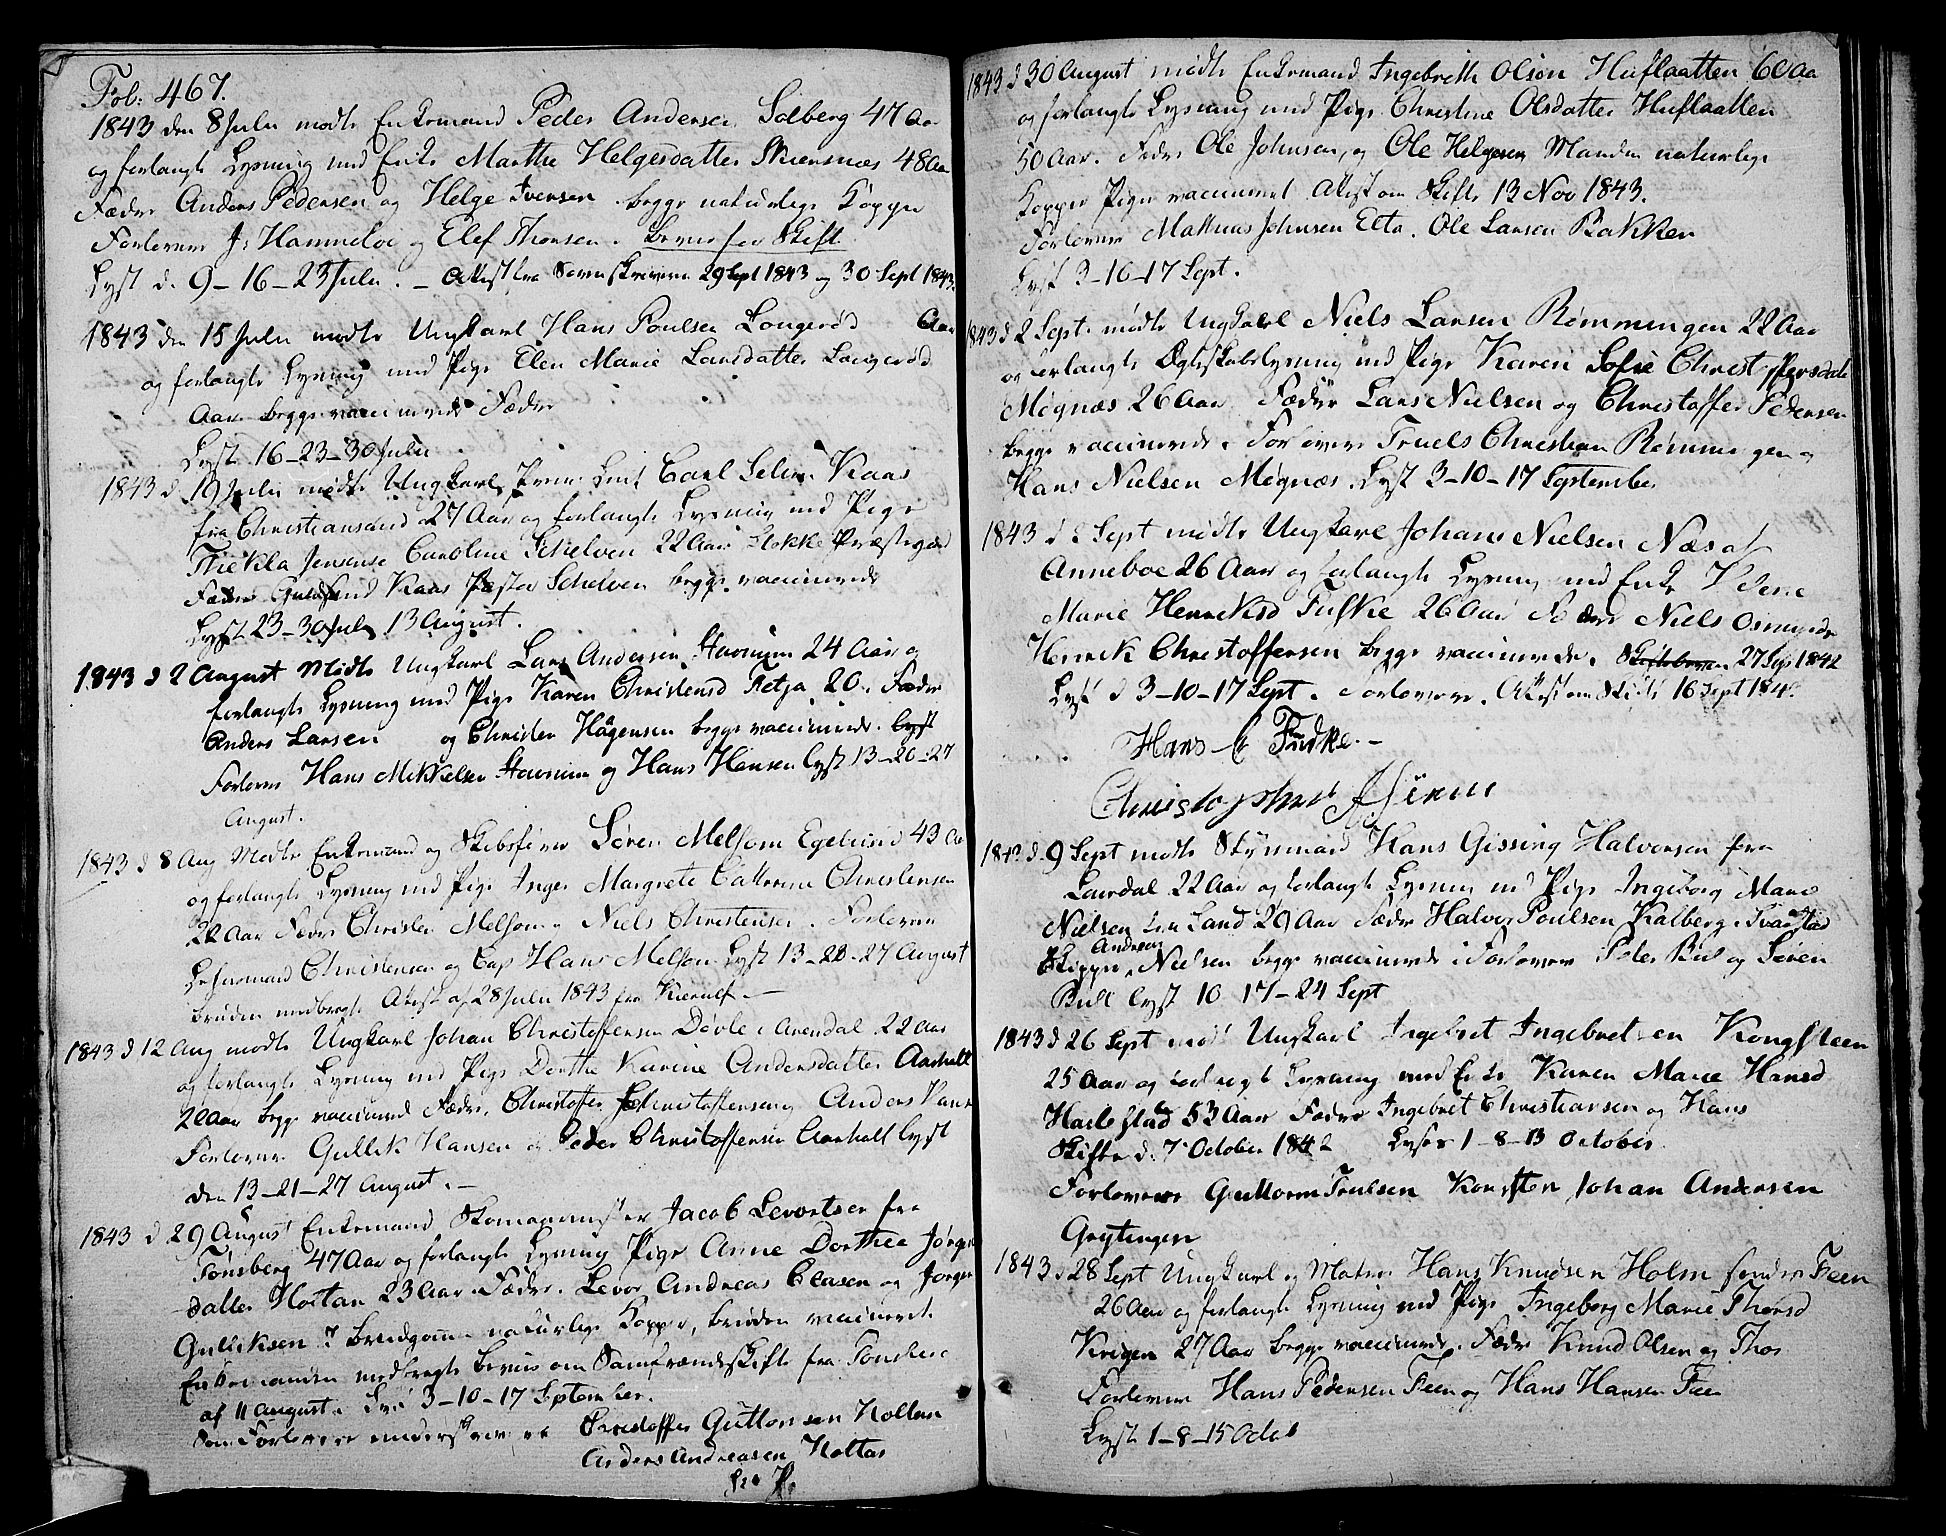 Fol: 467.
1843 den 8 Juli mødte Enkemand Peder Andersen Solberg 47 Aar
og forlangte Lysning med Enke Marthe Helgesdatter Skiersnæs 48 Aar
Fædre Anders Pedersen og Helge Iversen begge naturlige Kopper
Forlovere J: Hammeløe og Elef Thorsen. Beviis for Skift
Lyst d. 9-16-23 Juli. - Attest fra Sorenskriveren 29 Sept 1843 og 30 Sept 1843.
1843 den 15 Juli mødte Ungkarl Hans Poulsen Longerød Aar
og forlangte Lysning med Pige Elen Marie Larsdatter Langerød
Aar begge vaccinerede Fædre
Lyst 16-23-30 Juli
1843 d 19 Juli mødte Ungkarl Prem: Leut Carl Selmer Kaas
fra Christiansand 27 Aar og forlangte Lysning med Pige
Thekla Jensine Caroline Schelven 22 Aar Stokke Præstegaard
Fædre Kaas Pastor Schelven begge vaccinerede
Lyst 23-30 Juli 13 August.
1843 d 2 August Mødte Ungkarl Lars Andersen Stavnum 24 Aar og
forlangte Lysning med Pige Karen Christensd Retja 20. Fædre
Anders Larsen og Christen Hågensen begge vaccinerede. Lyst
Forlovere Hans Mikkelsen Stavnum og Hans Hansen Lyst 13-20-27
August.
1843 d 8 Aug Mødte Enkemand og Skibsfører Søren Melsom Egelund 43 Aar
og forlangte Lysning med Pige Inger Margrete Cathrine Christensen
22 Aar Fædre Christen Melsom og Niels Christensen. Forlovere
Lehnsmand Christensen og Cap Hans Melsom Lyst 13-20-27 August
bruden medbragte Attest af 28 Juli 1843 fra Kierulf.-
1843 d 12 Aug mødte Ungkarl Johan Christoffersen Døvle i Arendal 22 Aar
og forlangte Lysning med Pige Dorthe Karine Andersdatter Aarhalt
22 Aar begge vaccinered Fædre, Christoffer Christoffersen og Anders Hans
Forlovere Gullik Hansen og Peder Christoffersen Aarhalt Lyst
den 13-21-27 August.-
1843 d 29 August Enkemand Skomagermester Jacob Levortsen fra
Tønsberg 47 Aar og forlangte Lysning Pige Anne Dorthea Jørgens
datter Holtan 23 Aar. Fædre. Levor Andreas Clasen og Jørgen
Gulliksen? Brudgommen naturlige Kopper, bruden vaccineret
Enkemanden medbragte beviis om Samfrændeskifte fra Tønsberg
af 11 August. Lyst 3-10-17 September.
Som Forlovere underskrev Christoffer Guttormsen Holtan
Anders Andreasen Holtan
1843 d 30 August mødte Enkemand Ingebreth Olsen Huflaatten 60 Aar
og forlangte Lysning med Pige Christine Olsdatter Huflaatten
50 Aar. Fædre Ole Johnsen, og Ole Helgesen Manden naturlige
Kopper Pigen vaccineret Attest om Skifte 13 Nov 1843.
Forlovere Mathias Johnsen Elta. Ole Larsen Bakken
Lyst 3-10-17 Sept.
1843 d 2 Sept. mødte Ungkarl Niels Larsen Rømmingen 22 Aar
og forlangte Ægteskabslysning med Pige Karen Sofie Christoffersdate
Møgnæs 26 Aar Fædre Lars Nielsen og Christoffer Pedersen
begge vaccinerede. Forlovere Truels Christian Rømmingen og
Hans Nielsen Møgnæs. Lyst 3-10-17 September
1843 d 2 Sept mødte Ungkarl Johans Nielsen Næs af
Anneboe 26 Aar og forlangte Lysning med Enke
Marie Henriksd Fuske 26 Aar Fædre Niels Osmundsen
Henrik Christoffersen begge vaccinerede. 27 Sep 1842
Lyst d 3-10-17 Sept. Forlovere. Attest om Skifte 16 Sept
Hans C Fuske.-
Christopher
1843 d. 9 Sept mødte Styrmand Hans Gissing Halvorsen fra
Laurdal 22 Aar og forlangte Lysning med Pige Ingeborg Marie
Nielsen fra Land 29 Aar Fædre Halvor Poulsen Kalberg i Tvastad og
Skipper Andreas Nielsen begge vaccinerede. Forlovere Peder Bul og Søren
Bull Lyst 10 17-24 Sept
1843 d 26 Sept mødt Ungkarl Ingebret Ingebretsen Kongsteen
25 Aar og forlangt Lysning med Enke Karen Marie Hansd
Harlestad 53 Aar Fædre Ingebret Christiansen og Hans
Skifte d. 7 October 1842 Lyses 1-8-15 October
Forlovere Guttorm Truelsen Johan Andersen
Grytingen
1843 d 28 Sept Ungkarl og Matros Hans Knudsen Holm søndre Feen
26 Aar og forlangte Lysning med Pige Ingeborg Marie Thorsd
Krigen 27 Aar begge vaccinered. Fædre Knud Olsen og Thor
Forlovere Hans Pedersen Feen og Hans Hansen Feen
Lyst 1-8-15 Octob